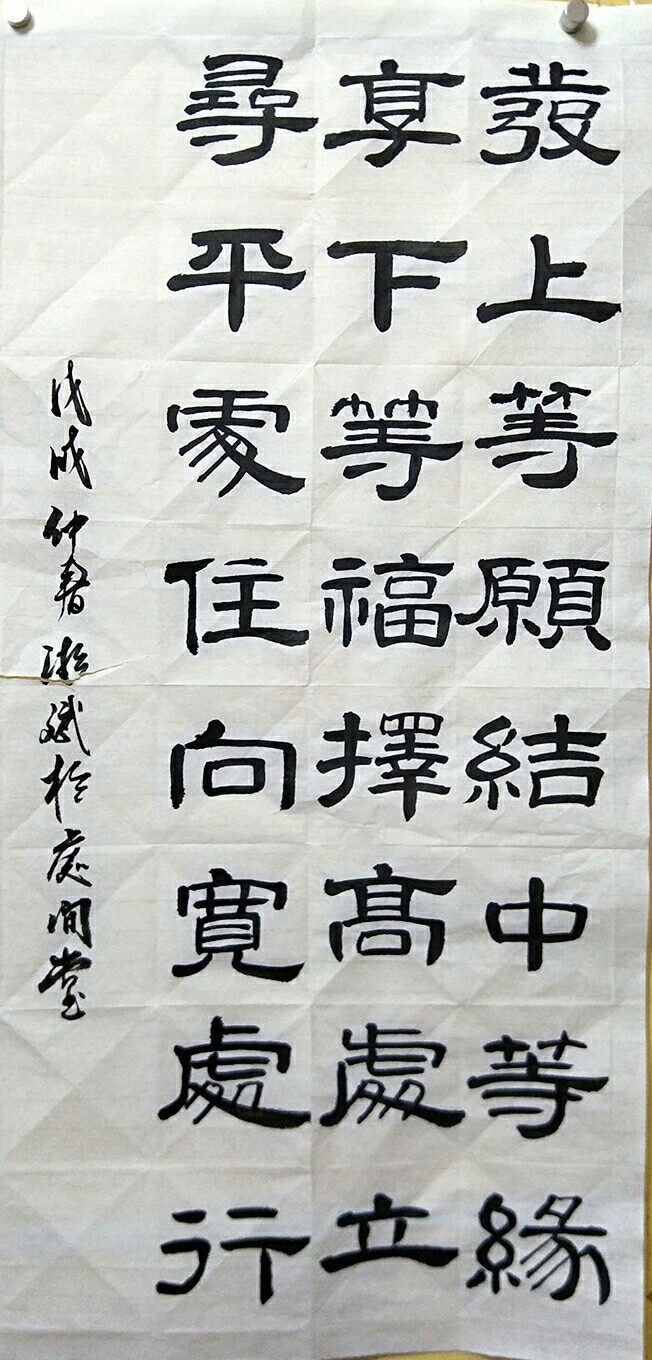 發上等願結中等緣
享下等福擇高處立
尋平處住向寬處行
戊戌仲春 斌於 閒堂